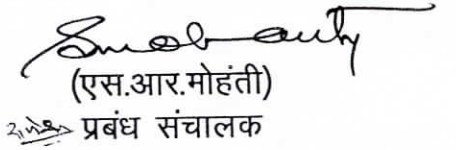 (एस.आर.मोहंती)
प्रबंध संचालक